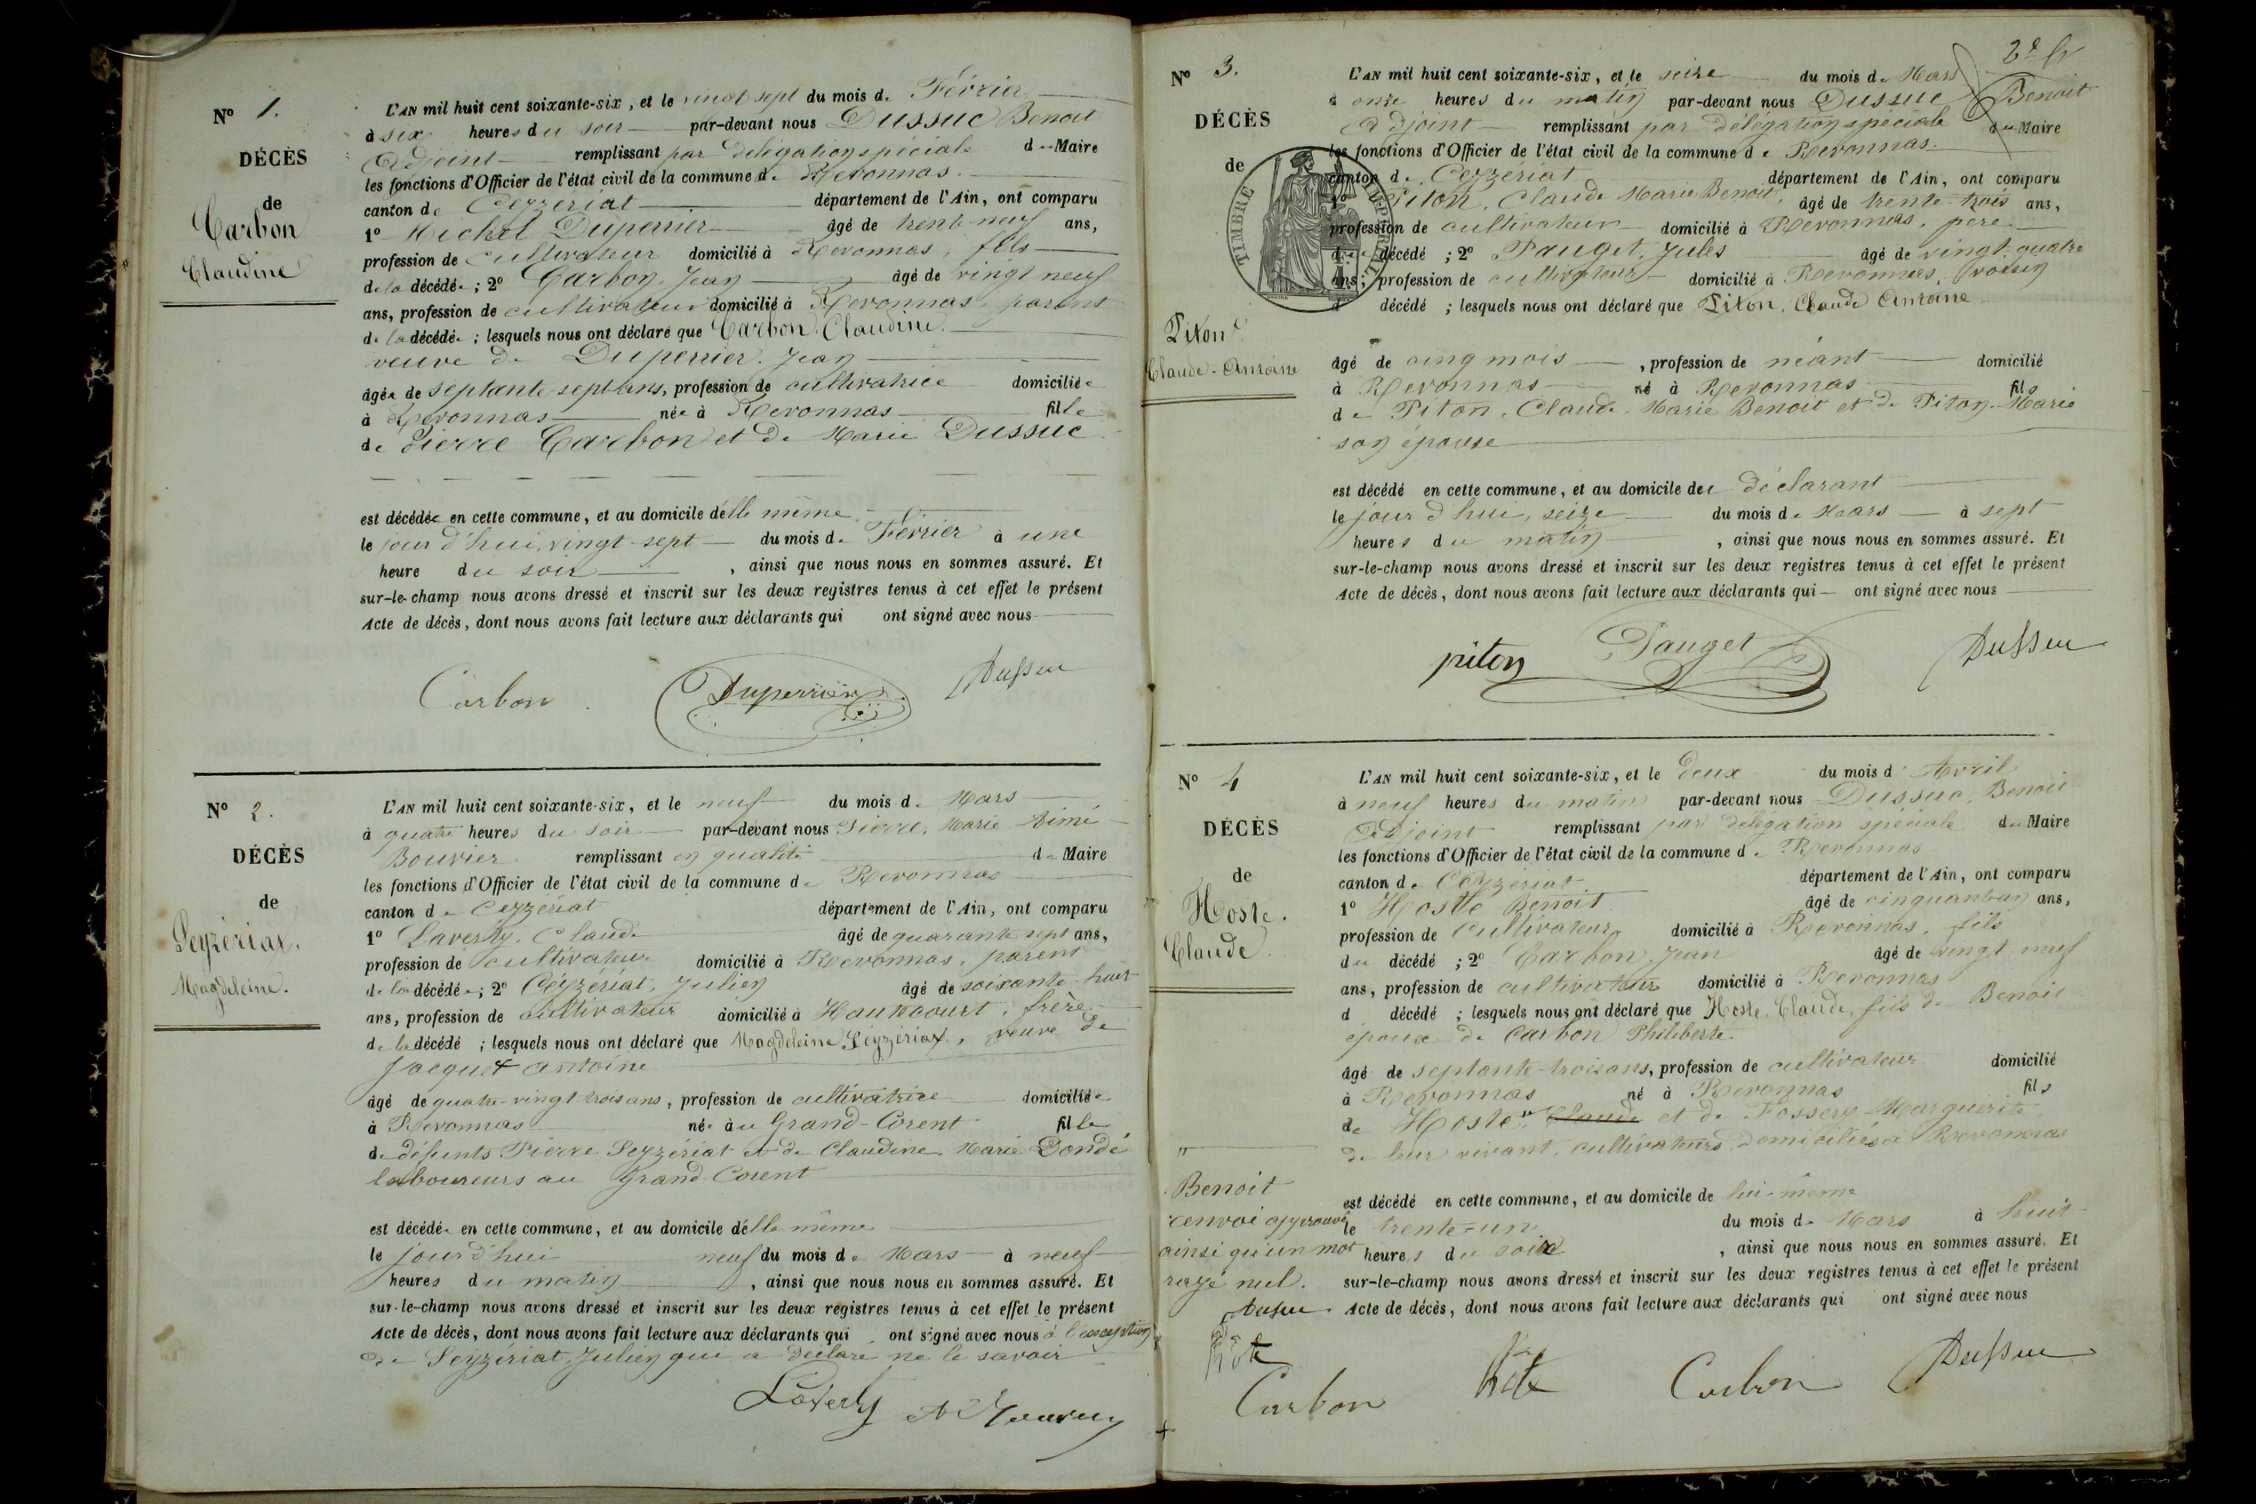 N° 1.
DÉCÈS
de
Carbon
Claudine
L'AN mil huit cent soixante-six, et le vingt sept du mois de Février
à six heures du soir par-devant nous Dussuc Benoit
Adjoint remplissant par délégation spéciale du Maire
les fonctions d'Officier de l'état civil de la commune de Revonnas.
canton de Ceyzériat département de l'Ain, ont comparu
1° Michel Duperrier âgé de trente-neuf ans,
profession de cultivateur domicilié à Revonnas, fils
de la décédée; 2° Carbon, Jean âgé de vingt neuf
ans, profession de cultivateur domicilié à Revonnas parent
de la décédée; lesquels nous ont déclaré que Carbon, Claudine.
veuve de Duperrier, Jean
âgée de septante sept ans, profession de cultivatrice domiciliée
à Revonnas née à Revonnas fille
de Pierre Carbon et de Marie Dussuc
est décédée en cette commune, et au domicile d'elle même
le jour d'hui, vingt-sept du mois de Février à une
heure du soir, ainsi que nous nous en sommes assuré. Et
sur-le-champ nous avons dressé et inscrit sur les deux registres tenus à cet effet le présent
Acte de décès, dont nous avons fait lecture aux déclarants qui ont signé avec nous
Carbon Duperrier Dussuc
N° 2.
DÉCÈS
de
Seyzériat.
Magdeleine.
L'AN mil huit cent soixante-six, et le neuf du mois de Mars
à quatre heures du soir par-devant nous Pierre, Marie Aimé
Bouvier remplissant en qualité de Maire
les fonctions d'Officier de l'état civil de la commune de Revonnas
canton de Ceyzériat département de l'Ain, ont comparu
1° Laverty, Claude âgé de quarante sept ans,
profession de cultivateur domicilié à Revonnas, parent
de la décédée; 2° Ceyzériat, Julien âgé de soixante-huit
ans, profession de cultivateur domicilié à Hautecourt, frère
de la décédé; lesquels nous ont déclaré que Magdeleine Seyzériat, veuve de
Jacquet Antoine
âgé de quatre-vingt-trois ans, profession de cultivatrice domiciliée
à Revonnas née au Grand-Corent fille
de défunts Pierre Seyzériat et de Claudine Marie Dondé
laboureurs au Grand Corent
est décédée en cette commune, et au domicile d'elle même
le jourd'hui neuf du mois de Mars à neuf
heures du matin, ainsi que nous nous en sommes assuré. Et
sur-le-champ nous avons dressé et inscrit sur les deux registres tenus à cet effet le présent
Acte de décès, dont nous avons fait lecture aux déclarants qui ont signé avec nous à l'exception
de Seyzériat, Julien qui a déclaré ne le savoir
Laverty A Bouvier
2e fr
N° 3.
DÉCÈS
de
TIMBRE IMPÉRIAL
Piton
Claude-Antoine
L'AN mil huit cent soixante-six, et le seize du mois de Mars
à onze heures du matin par-devant nous Dussuc Benoit
Adjoint remplissant par délégation spéciale du Maire
les fonctions d'Officier de l'état civil de la commune de Revonnas.
canton de Ceyzériat département de l'Ain, ont comparu
1° Piton, Claude Marie Benoit, âgé de trente-trois ans,
profession de cultivateur domicilié à Revonnas, père
du décédé; 2° Pauget, Jules âgé de vingt-quatre
ans; profession de cultivateur domicilié à Revonnas, voisin
d décédé; lesquels nous ont déclaré que Piton, Claude Antoine
âgé de cinq mois, profession de néant domicilié
à Revonnas né à Revonnas fils
de Piton, Claude-Marie Benoit et de Piton Marie
son épouse
est décédé en cette commune, et au domicile de déclarant
le jour d'hui, seize du mois de Mars à sept
heures du matin, ainsi que nous nous en sommes assuré. Et
sur-le-champ nous avons dressé et inscrit sur les deux registres tenus à cet effet le présent
Acte de décès, dont nous avons fait lecture aux déclarants qui ont signé avec nous
piton Pauget Dussuc
N° 4
DÉCÈS
de
Hoste.
Claude.
L'AN mil huit cent soixante-six, et le deux du mois d'Avril
à neuf heures du matin par-devant nous Dussuc, Benoit
Adjoint remplissant par délégation spéciale du Maire
les fonctions d'Officier de l'état civil de la commune de Revonnas
canton de Ceyzériat département de l'Ain, ont comparu
1° Hoste Benoit âgé de cinquante un ans,
profession de Cultivateur domicilié à Revonnas, fils
du décédé; 2° Carbon, Jean âgé de vingt-neuf
ans, profession de cultivateur domicilié à Revonnas
d décédé; lesquels nous ont déclaré que Hoste, Claude, fils de Benoit
époux de Carbon Philiberte.
âgé de septante-trois ans, profession de cultivateur domicilié
à Revonnas né à Revonnas fils
de Hoste " Claude et de Marguerite
de leur vivant, cultivateurs domiciliés à Revonnas
est décédé en cette commune, et au domicile de lui-même
le trente-un du mois de Mars à huit
heures du soir, ainsi que nous nous en sommes assuré. Et
sur-le-champ nous avons dressé et inscrit sur les deux registres tenus à cet effet le présent
Acte de décès, dont nous avons fait lecture aux déclarants qui ont signé avec nous
"
Benoit
renvoi approuvé
ainsi qu'un mot
rayé nul.
Dussuc
hote
Carbon hote Carbon Dussuc